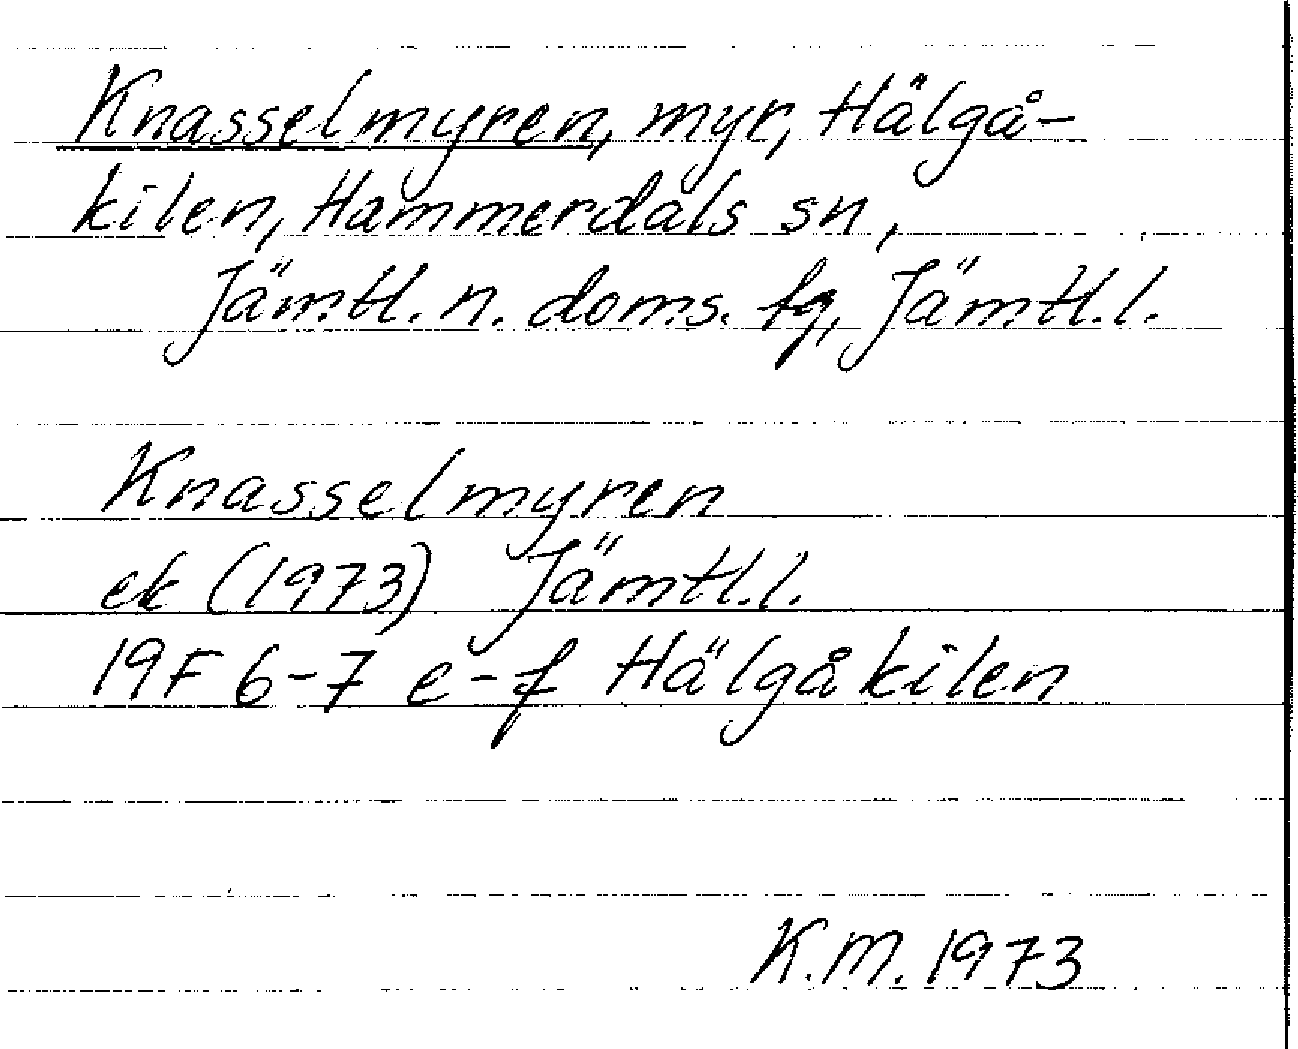 Knasselmyren, myr, Hälgå-
kilen, Hammerdals sn,
Jämtl. n. doms. fq, Jämtl.l.
Knasselmyren
ek (1973) Jämtl.l.
19F 6-7 e-f Hälgåkilen
K.M. 1973